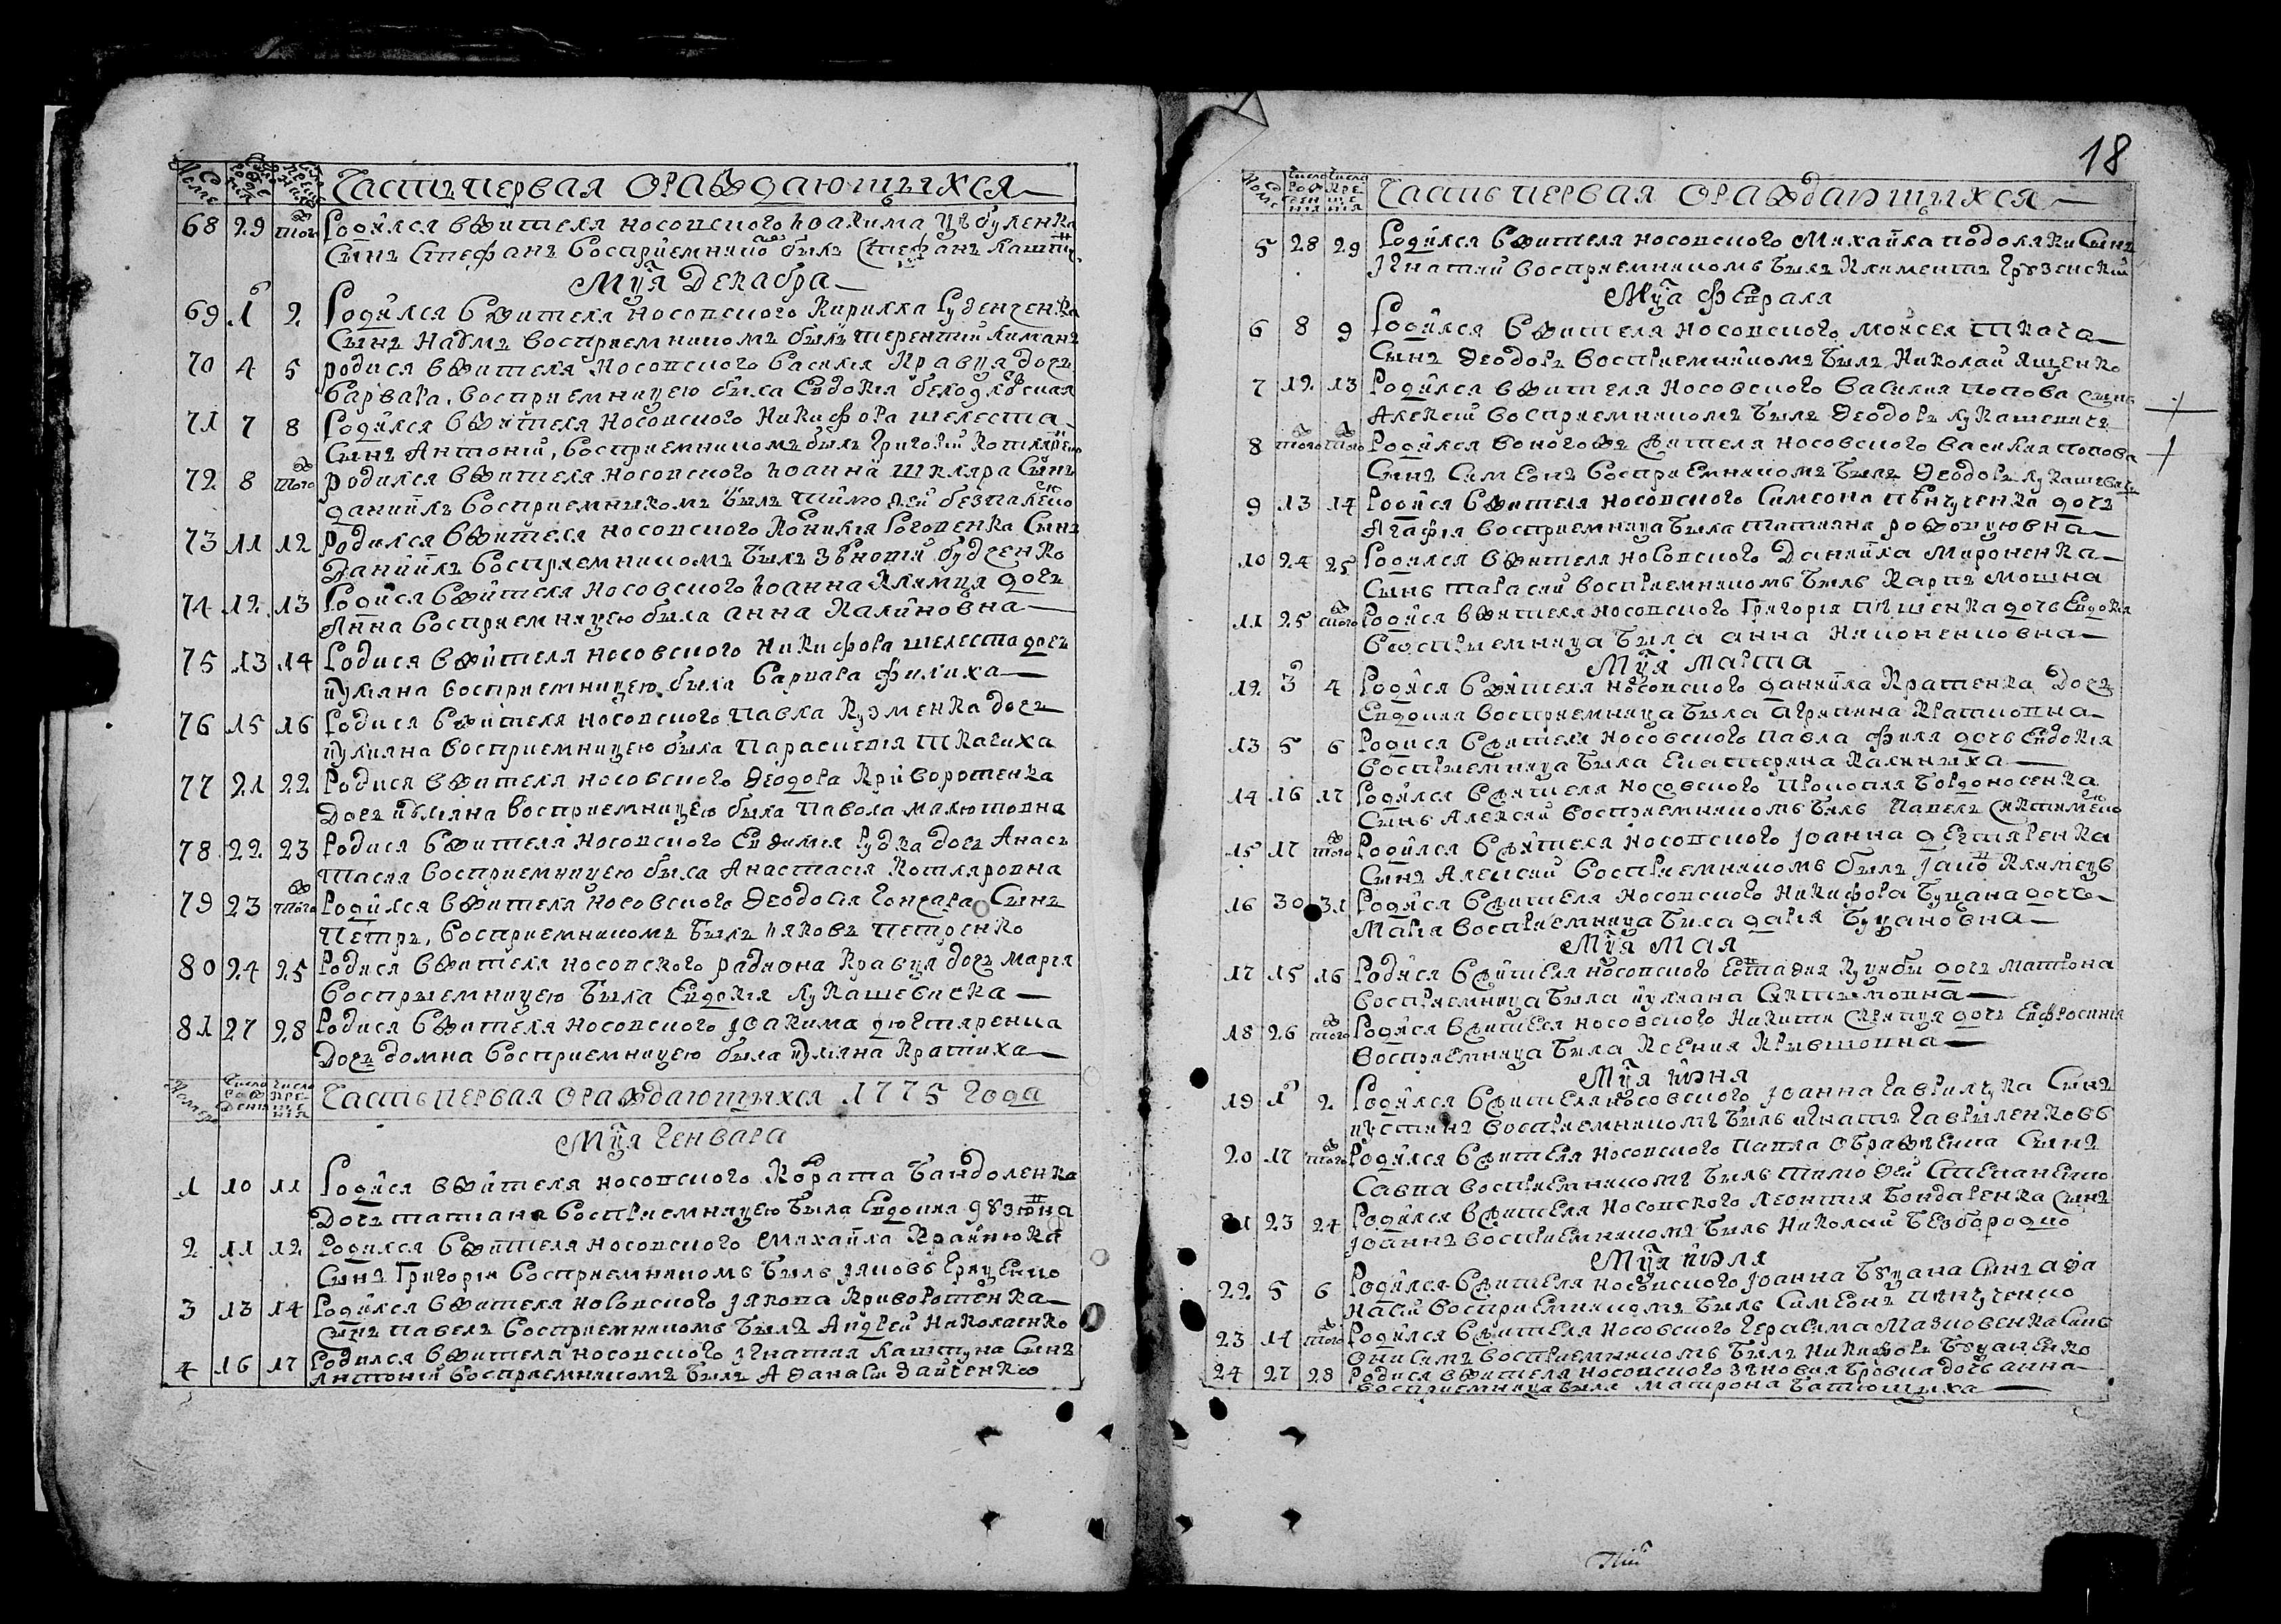 Часть первая ораждающыхся
68 29 тогож Родился в жителя носовского Іоакима Цѣбуленка
Сынъ Стефанъ восприемнико был Стефанъ Каштн
Мця Декабра
69 1 2 Родился в жителя носовского Кирилла Руденченка
Сынъ Наумъ восприемникомъ былъ терентий Лиманъ
70 4 5 родися в жителя Носовского Василия Кравця дочъ
варвара, восприемницею была Евдокия
71 7 8 Родился в жителя Носовского Никифора шелеста
Сынъ Антоний, восприемникомъ былъ Григорий
72 8 тогож родился в жителя носовского Іоанна шкляра Сынъ
даниилъ восприемникомъ былъ тимофей безпалко
73 11 12 Родился в жителя носовского Роговенка Сынъ
Даниилъ восприемникомъ былъ Рудченко
74 12 13 Родися в жителя Носовского Іоанна Клямця дочъ
Анна восприемницею была анна Калиновна
75 13 14 Родися в жителя носовского Никифора шелеста дочъ
иулияна восприемницею была варвара Филиха
76 15 16 Родися в жителя носовского павла Кузменка дочъ
иулияна восприемницею была Параскевия ткачиха
77 21 22 Родися в жителя носовского Феодора Криворотенка
Дочъ иулияна восприемницею была Павола малютовна
78 22 23 Родися в жителя носовского Евфимия Рудка дочъ Анас
тасия восприемницею была Анастасия Котляровна
79 23 тогож Родился в жителя носовского Феодосия Гончара Сынъ
Петръ, восприемникомъ былъ ияковъ петренко
80 24 25 Родися в жителя носовского радиона Кравця дочъ Мария
восприемницею была Евдокия Лукашевиска
81 27 28 Родися в жителя носовского Іоакима дюгтяренка
Дочъ домна восприемницею была иулияна Кратиха
Номеръ Число рожденія Число крещенія Часть первая ораждающыхся 1775 года
Мця Генвара
1 10 11 Родися в жителя носовского Кодрата Бандоленка
Дочъ татиана восприемницею была Евдокия
2 11 12 Родился в жителя носовского Михайла Крайнюка
Сынъ Григорій восприемникомъ былъ Іаковъ Гриценко
3 13 14 Родился в жителя носовского Іакова Криворотенка
Сынъ павелъ восприемникомъ былъ Андрей Николаенко
4 16 17 Родился в жителя носовского Ігнатия Каштуна Сынъ
Антоний восприемникомъ былъ Афанасий Зайченко
18
Часть первая ораждающыхся
5 28 29 Родился в жителя носовского Михайла подоляки Сынъ
Ігнатий восприемникомъ былъ Климентъ Грузенский
Мця Феврала
6 8 9 Родился в жителя носовского моисея ткача
Сынъ Феодоръ восприемникомъ былъ Николай Яценко
7 12 13 Родился в жителя Носовского василия попова сынъ
Алексий восприемникомъ былъ Феодоръ лукашевичъ
8 тогож тогож Родился воногожъ жителя носовского василия попова
Сынъ Симеонъ восприемникомъ былъ Феодоръ лукашевичъ
9 13 14 Родися в жителя носовского Симеона пѣнчученка дочъ
Агафія восприемница была татияна
10 24 25 Родился в жителя носовского Даниила Мироненка
Сынъ тарасий восприемникомъ былъ Карпъ мошна
11 25 тогож Родися в жителя носовского Григория дочь Евдокия
восприемница была анна
Мця марта
12 3 4 Родися в жителя носовского даниила Кратенка дочъ
Евдокия восприемница была агрипина Кратковна
13 5 6 Родися в жителя носовского павла филя дочь Евдокия
восприемница была Екатерина Калиниха
14 16 17 Родился в жителя носовского Прокопия Бордоносенка
Сынъ Алексий восприемникомъ былъ павелъ
15 17 тогож Родился в жителя носовского Іоанна дегтяренка
Сынъ Алексий восприемникомъ былъ Іаковъ Клямецъ
16 30 31 Родися в жителя носовского Никифора Буцана дочь
Мария восприемница была дария Буцановна
Мця мая
17 15 16 Родися в жителя носовского Естафия Куцубы дочъ матрона
восприемница была иулияна
18 26 тогож Родися в жителя носовского Никити дочъ Евфросиния
восприемница была Ксения Крывшовна
Мця июня
19 1 2 Родился в жителя носовского Іоанна Гаврилчука Сынъ
иустинъ восприемникомъ былъ игнатъ Гавриленковъ
20 17 тогож Родился в жителя носовского павла Сынъ
Савва восприемникомъ былъ тимофей Степаненко
21 23 24 Родился в жителя Носовского леонтия Бондаренка сынъ
Іоаннъ восприемникомъ былъ николай Безбородко
Мця июля
22 5 6 Родился в жителя носовского Іоанна Буцана Сынъ афа
насій восприемникомъ былъ Симеонъ пѣнчученко
23 14 тогож Родился в жителя носовского Герасима Мазновенка Синъ
Онисимъ восприемникомъ былъ Никифоръ Буцаненко
24 27 28 Родися в жителя носовского зѣновия Бровка дочь анна
восприемница была матрона Батюшиха